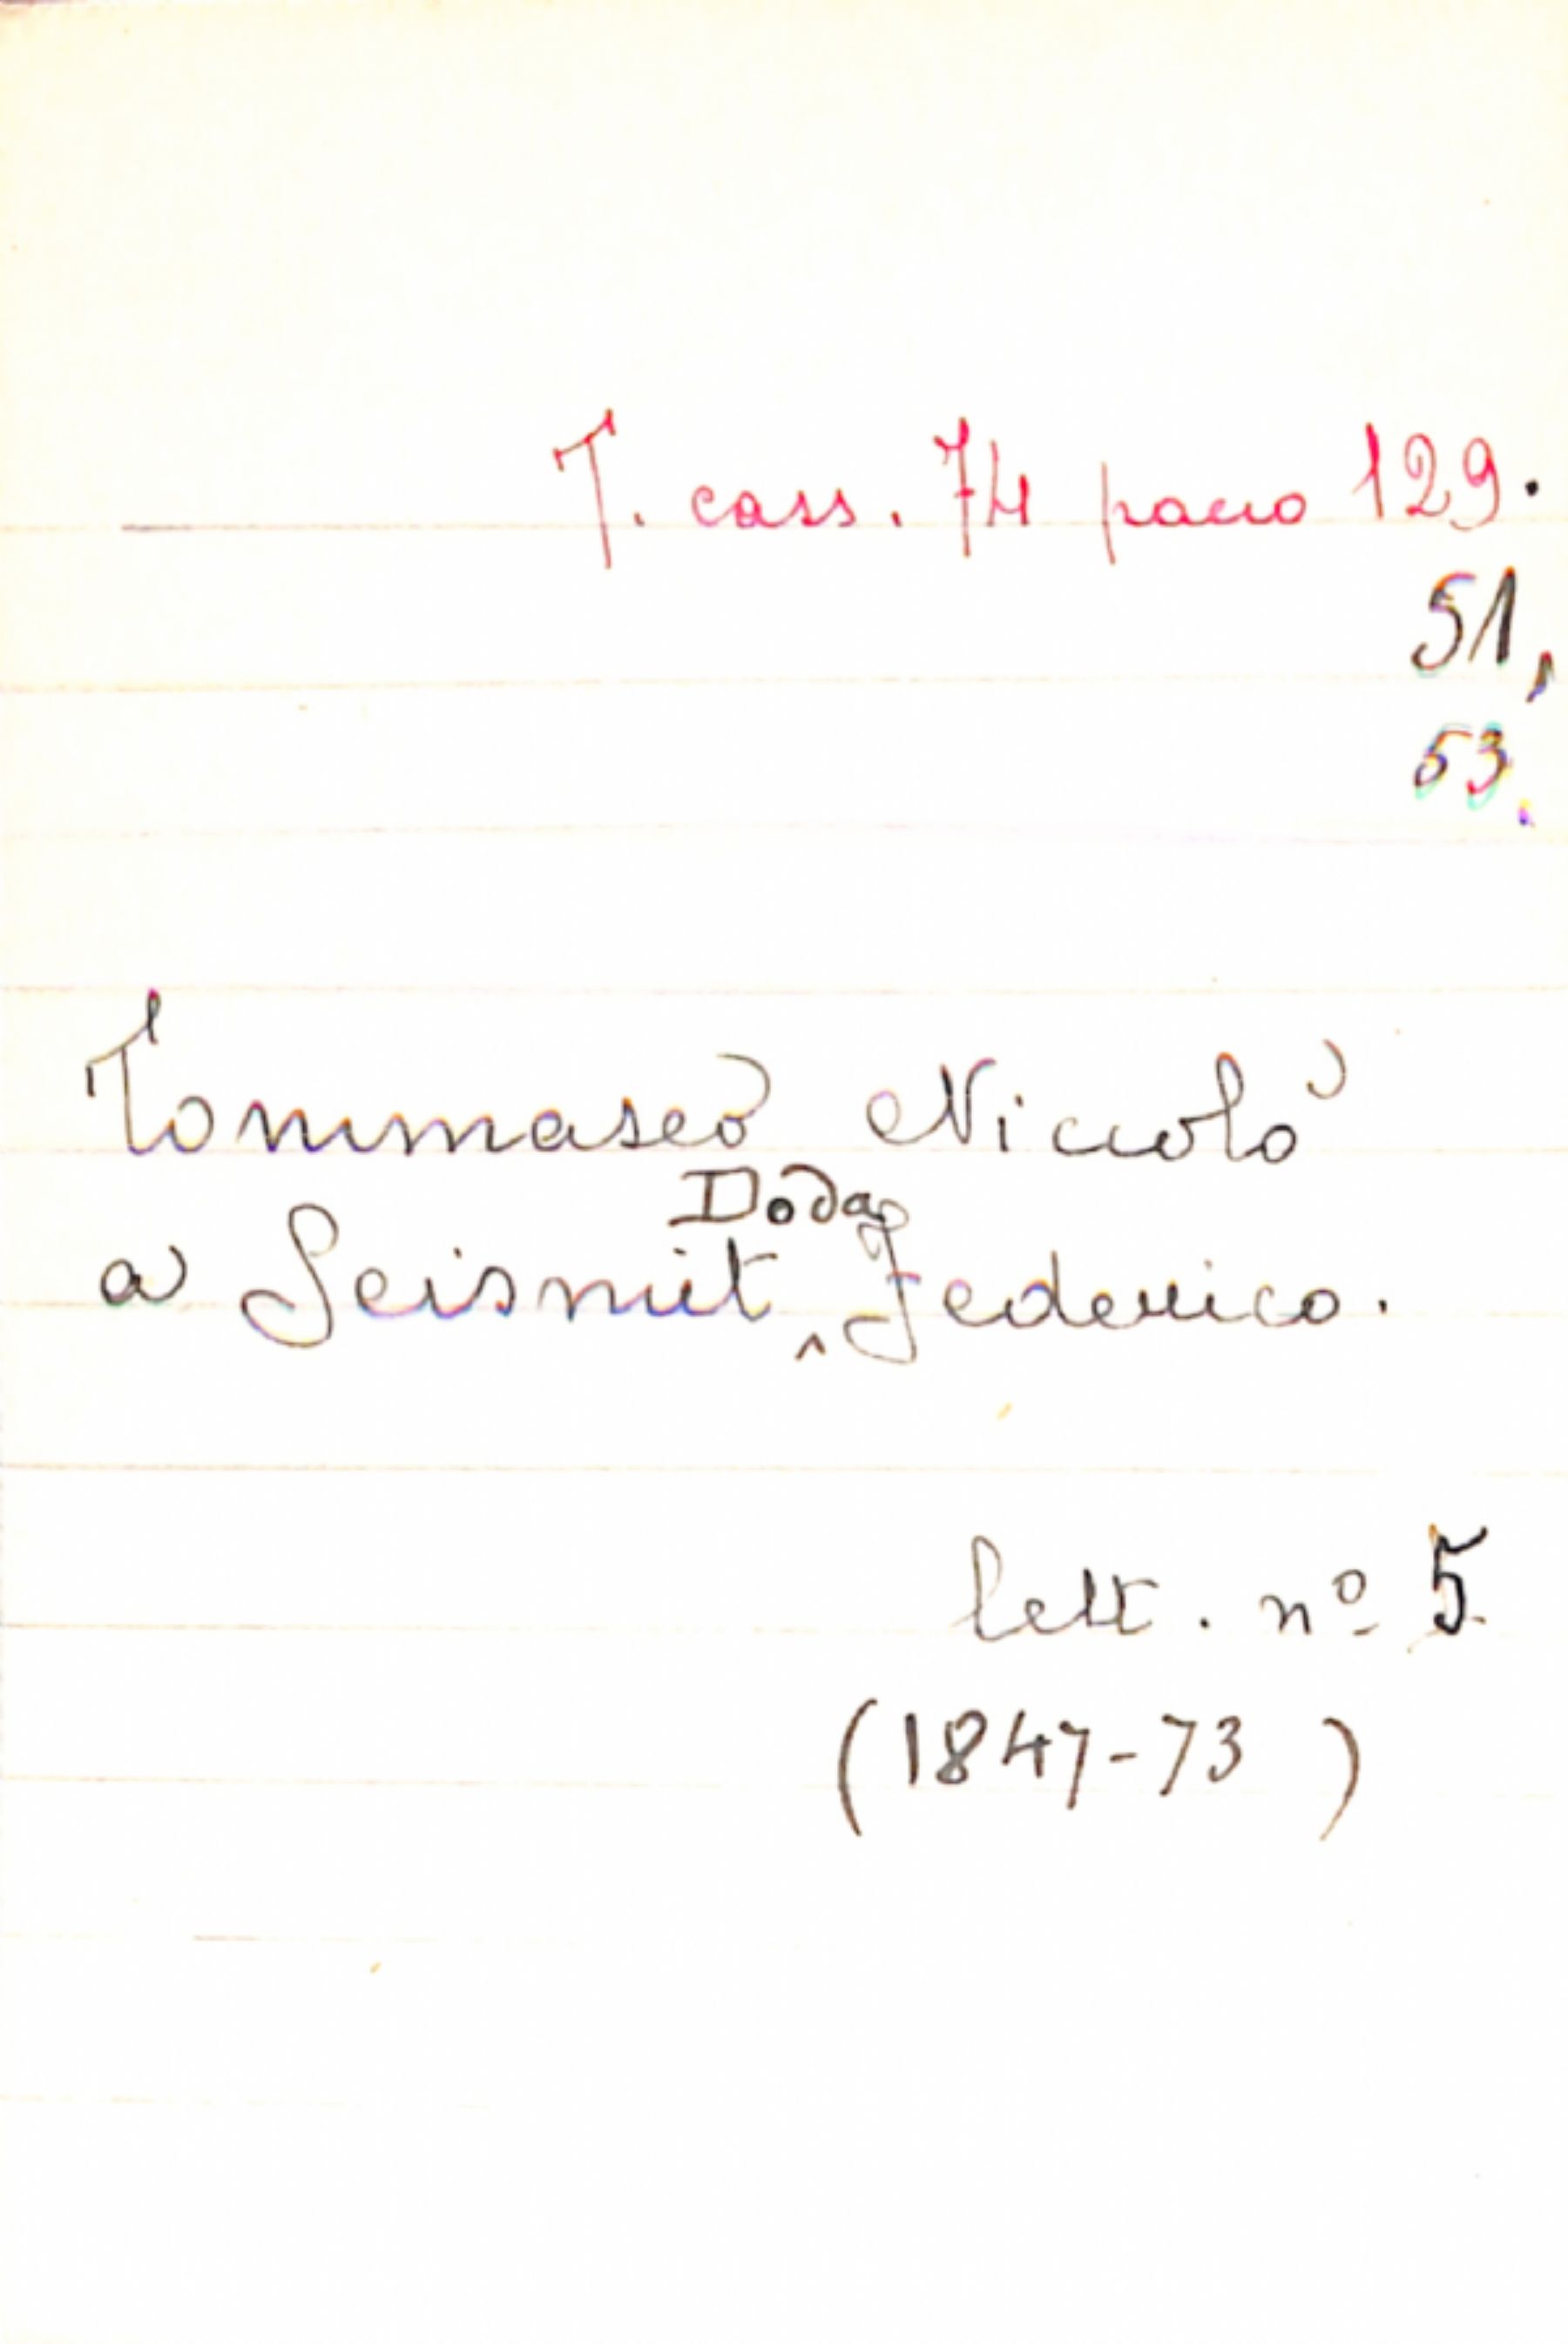 T. cass. 74 pacco 129.
51,
53.
Tommaseo Niccolò
a Seismit Doda Federico.
lett. nº 5
(1847-73 )